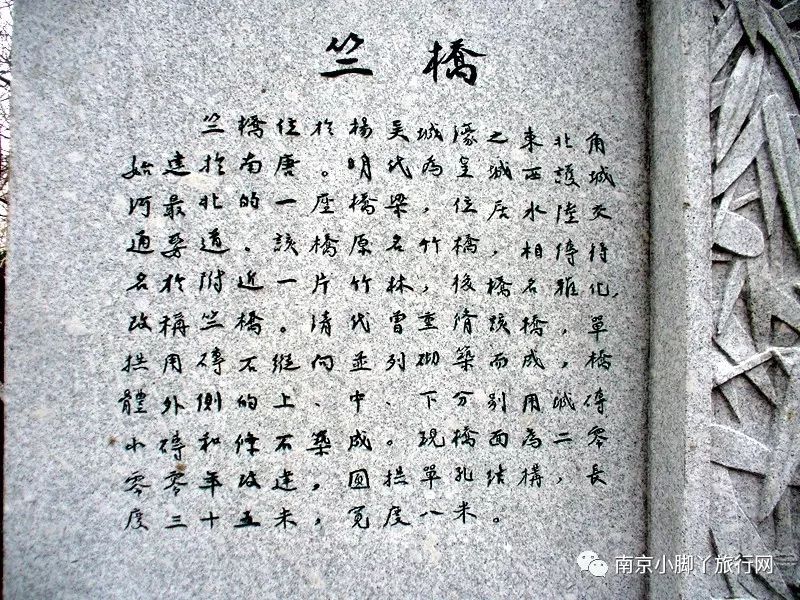 竺橋
竺橋位於楊吴城濠之東北角
始建於南唐。明代為皇城西護城
河最北的一座橋梁，位居水陸交
通要道。該橋原名竹橋，相傳得
名於附近一片竹林，後橋名雅化，
改稱竺橋。清代曾重脩該橋，單
拱用磚石縱向並列砌築而成，橋
體外側的上、中、下分别用城磚
小磚和條石築成。現橋面為二零
零零年改建，圓拱單孔结構，長
度三十五米，寬度八米。
南京小脚丫旅行网